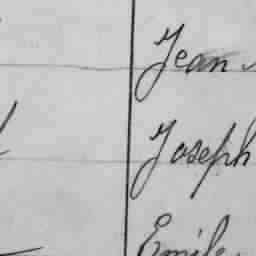 Jean
Joseph
Emile